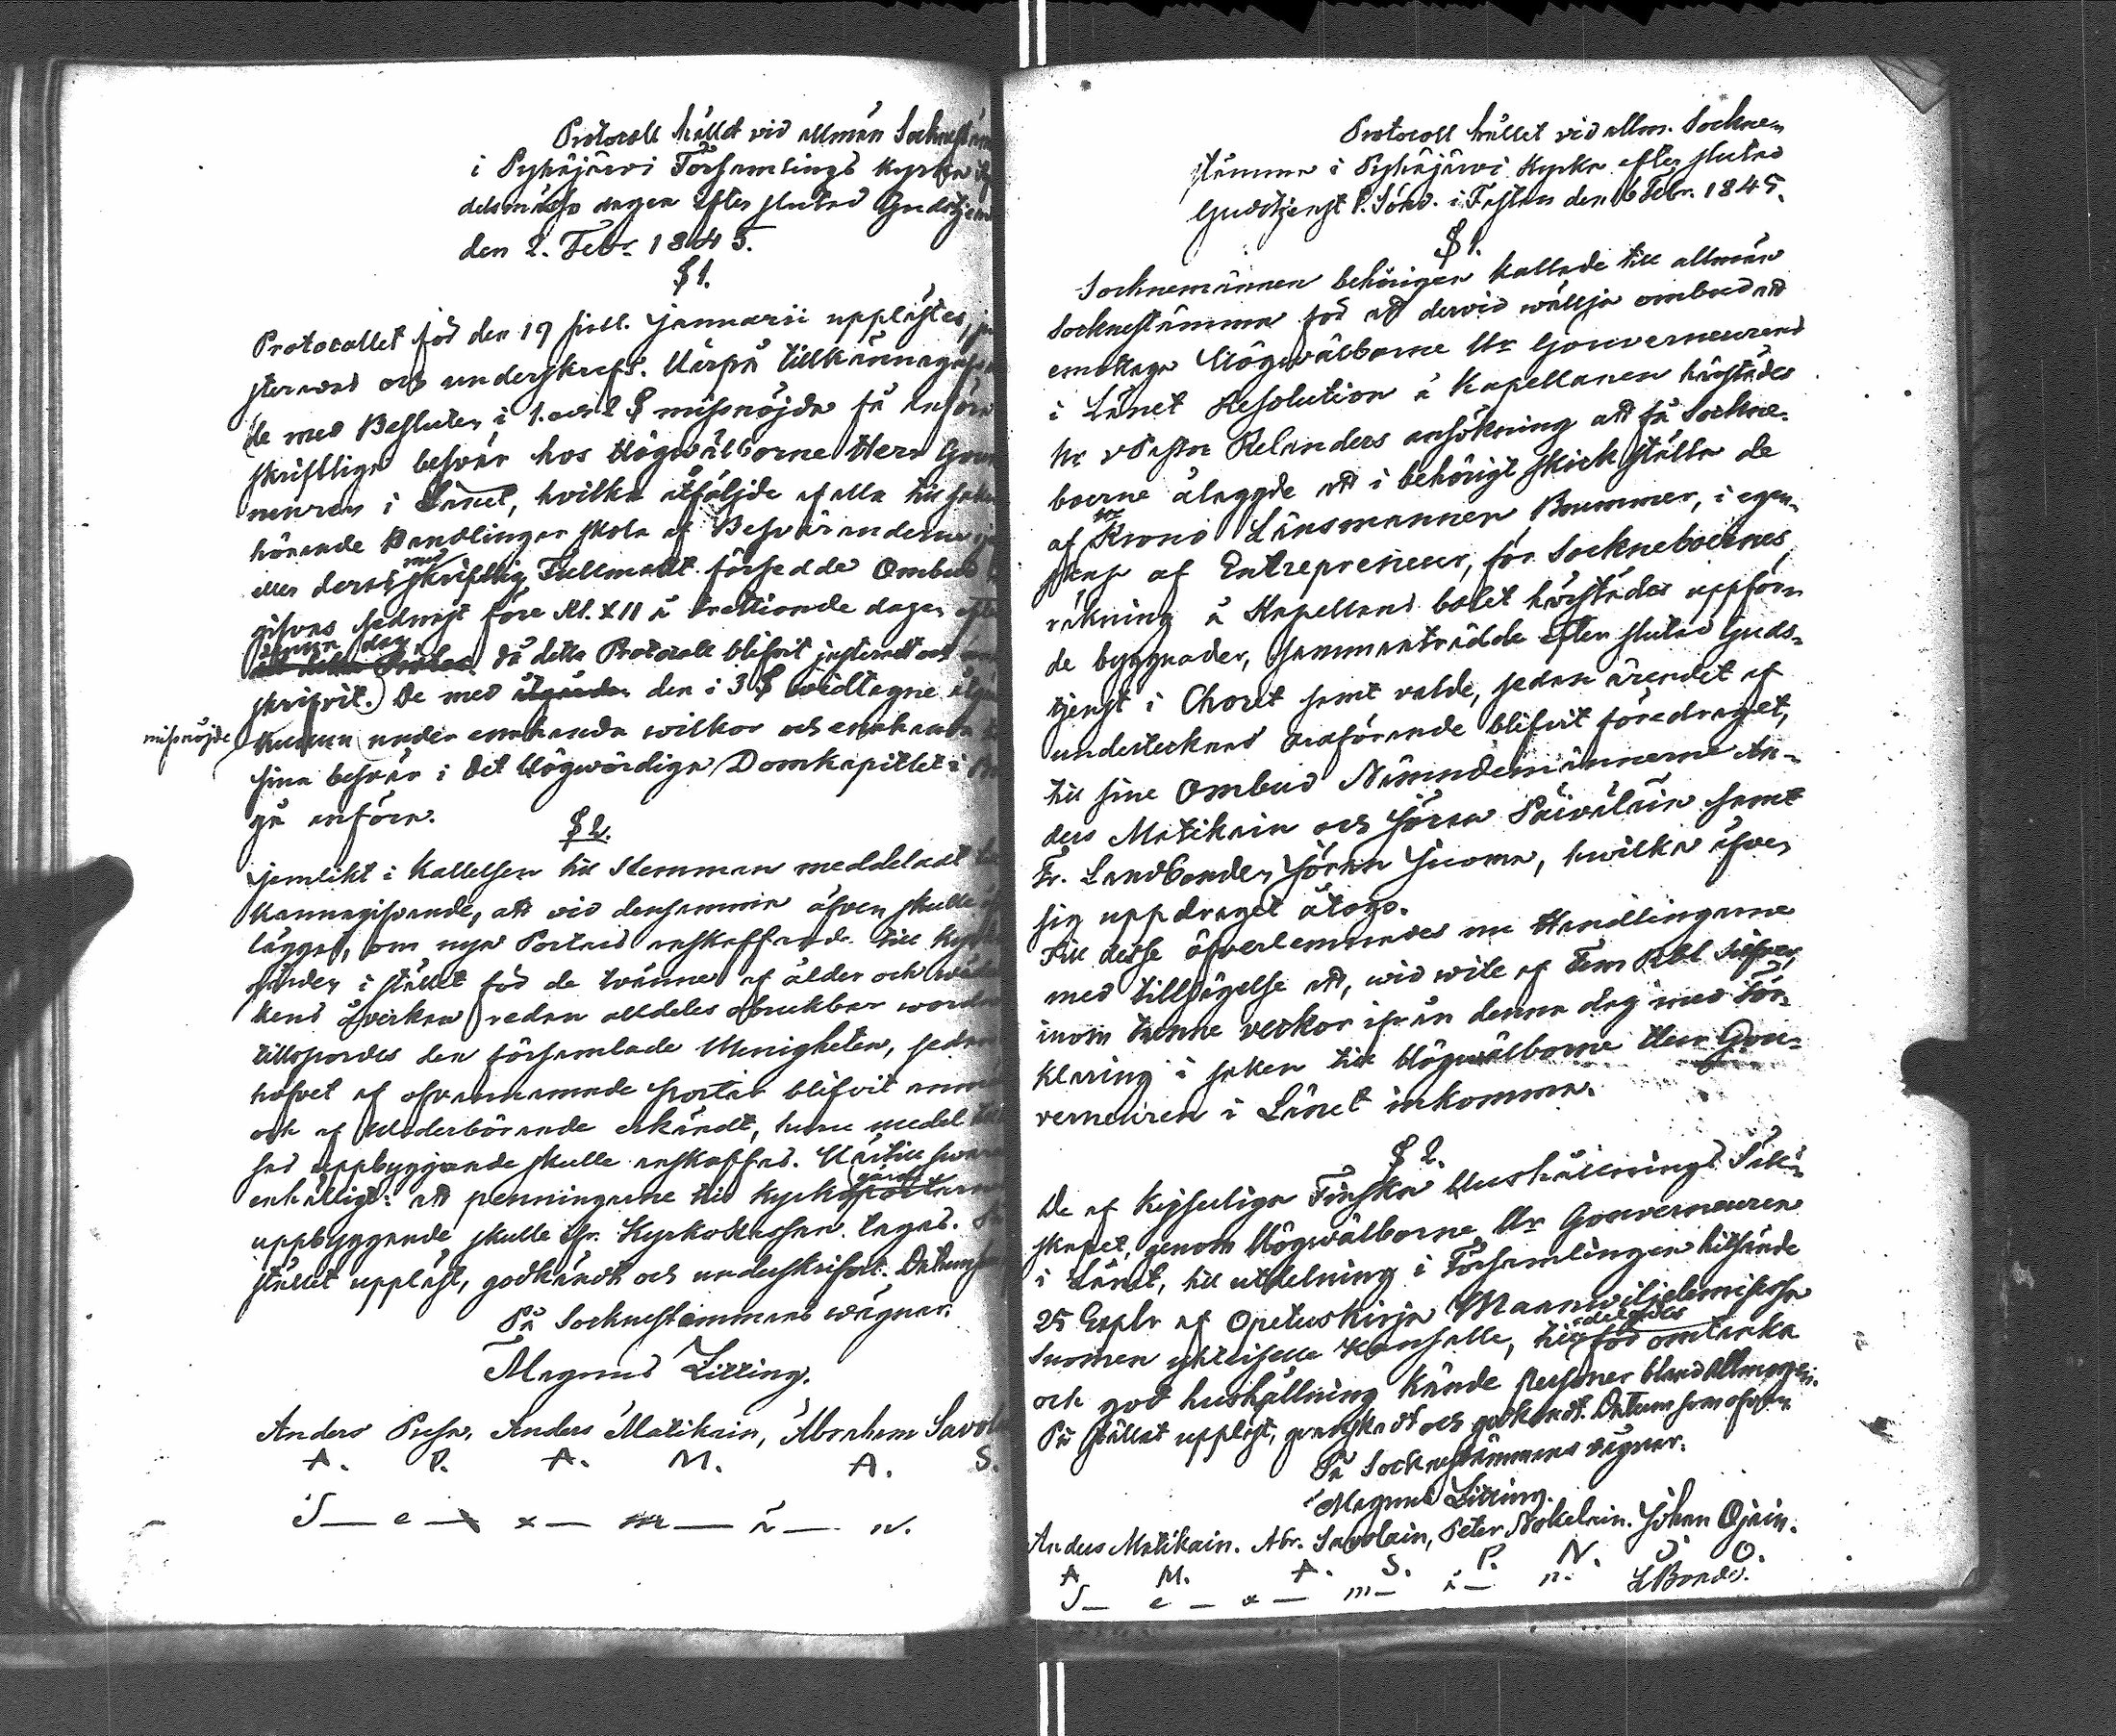 Protocoll hålldt vid allmän Socknestäm
i Pyhäjärvi Församlings Kyrka
delsmässo dagen efter slutad Gudstjen
den 2. Febr. 1845.
§ 1.
Protocollet för den 19 sistl. Januarii upplästes, ju
sterades och underskrefs. Härpå tillkännagafs
de med Besluten i 1. och 2 § missnöjda få anföra
skriftliga besvär hos Högwälborne Herr Gou
neuren i Länet, hvilka åtföljde af alla till saken
hörande Handlingar skola af Beswäranderne
eller deras med skriftlig Fullmakt försedde Ombud
gifvas sednast före Kl. XII å trettionde dagen efter
denna dag då detta Protocoll blifvit justeradt och
skrifvit. De med den i 3 § widtagne
missnöjde kunna under enahanda wilkor och enahanda
sina besvär i det Högwördiga Domkapitlet i
gå anföra.
§ 2.
Jemlikt i Kallelsen till Stemman meddeladt
kännagifvande, att vid densamma äfven skulle
läggas, om nya Portars anskaffande till Kyrko
gården i stället för de tvänne af ålder och
kens åverkan redan alldeles obrukbar worden
tillspordes den församlade Menigheten, sedan
hofvet af ofvannämnde portar blifvit
och af Wederbörande erkändt, huru medel till
ses uppbyggande skulle anskaffas. Härtill swara
enhälligt: att penningarne till Kyrkogårds portarnes
uppbyggande skulle ifr. Kyrkokassan tagas. På
stället uppläst, godkändt och underskrifvet. Datum som
På Sockenstämmans wägnar.
Magnus Litzing.
Anders Pusa, Anders Matikain, Abraham Savola
A. P. A. M. A. S.
S — e — x — m — ä — n.
Protocoll hållet vid allm. Sockne-
stämma i Pyhäjärvi Kyrka efter slutad
Gudstjenst 1. Sönd. i Fastan den 16 Febr. 1845.
§ 1.
Socknemännen behörigen kallade till allmän
Socknestämma för att dervid wällja ombud att
emottaga Högwälborne Hr Gouverneurens
i Länet Resolution å Kapellanen härstädes
Hr vPastor Relanders ansökning att få Sockne-
boerne ålaggde att i behörigt skick ställa de
af Krono Länsmannen Brummer, i egen-
skap af Entrepreneur, för Sockneboernes
räkning å Kapellans bolet härstädes uppförn
de byggnader, sammanträdde efter slutad Guds-
tjenst i Choret samt valde, sedan ärendet af
undertecknad ordförande blifvit föredraget,
till sine Ombud Nämndemännerne An-
ders Matikain och Jöran Päiväläin samt
Fr. Landbonden Jöran Juoma, hwilka äfven
sig uppdraget åtogo.
Till desse öfverlemnades nu Handlingarne
med tillsägelse att, wid wite af Fem Rbl Silfver,
inom trenne veckor ifrån denna dag med För-
klaring i saken till Högwälborne Herr Gou-
verneuren i Länet inkomma.
§ 2.
De af Kejserliga Finska Hushållnings Säll-
skapet, genom Högwälborne Hr Gouverneuren
i Länet, till utdelning i Församlingen hitsände
25 Explr af Opetuskirja Maanwiljelemisessa
Suomen yhteiselle Kansalle, utdelades till för omtanka
och god hushållning kände personer bland Allmogen.
På stället uppläst, granskadt och godkändt. Datum som ofvan.
På Socknestämmans vägnar.
Magnus Litzing.
Anders Matikain. Abr. Savolain, Peter Nokelain. Johan Ojain.
A M. A. S. P. N. J. O.
S — e — x — m — ä — n. LBonde.